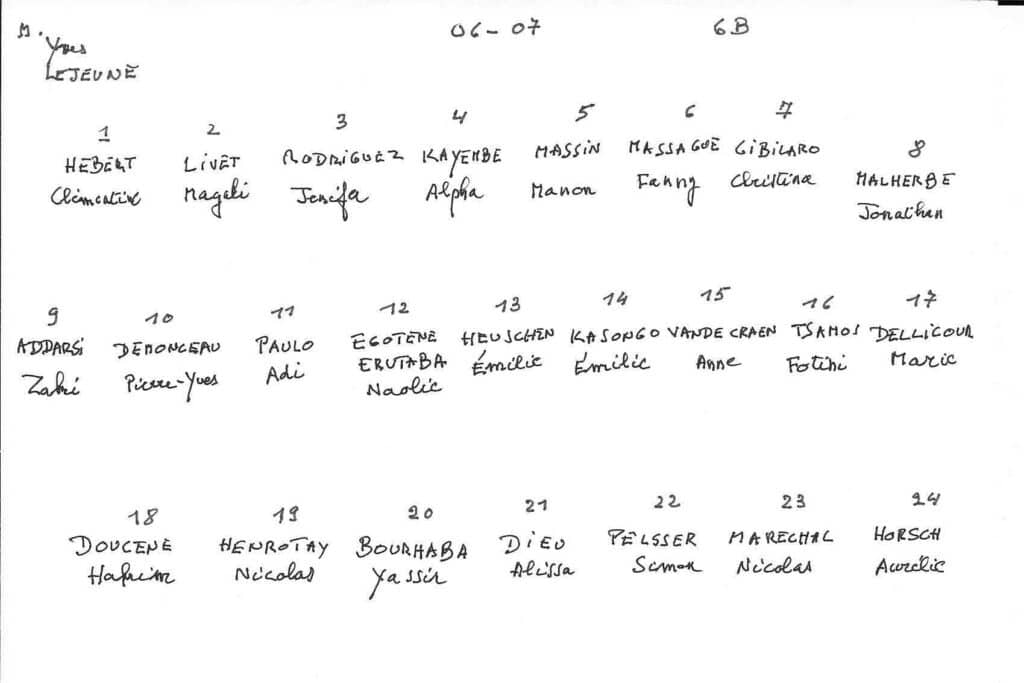 M. Yves LEJEUNE
06-07 6B
1 2 3 4 5 6 7 8
HEBERT LIVET RODRIGUEZ KAYEMBE MASSIN MASSAGUÉ GIBILARO MALHERBE
Clémentine Magali Jenifa Alpha Manon Fanny Christina Jonathan
9 10 11 12 13 14 15 16 17
ADDARSI DEMONCEAU PAULO EGOTENE HEUSCHEN KASONGO VANDE CRAEN TSAMOS DELLICOUR
ERUTABA
Zaki Pierre-Yves Adi Naolie Émilie Émilie Anne Fotini Marie
18 19 20 21 22 23 24
DOUCENE HENROTAY BOURHABA DIEU PELSSER MARECHAL HORSCH
Hakim Nicolas Yassin Alissa Simon Nicolas Aurélie